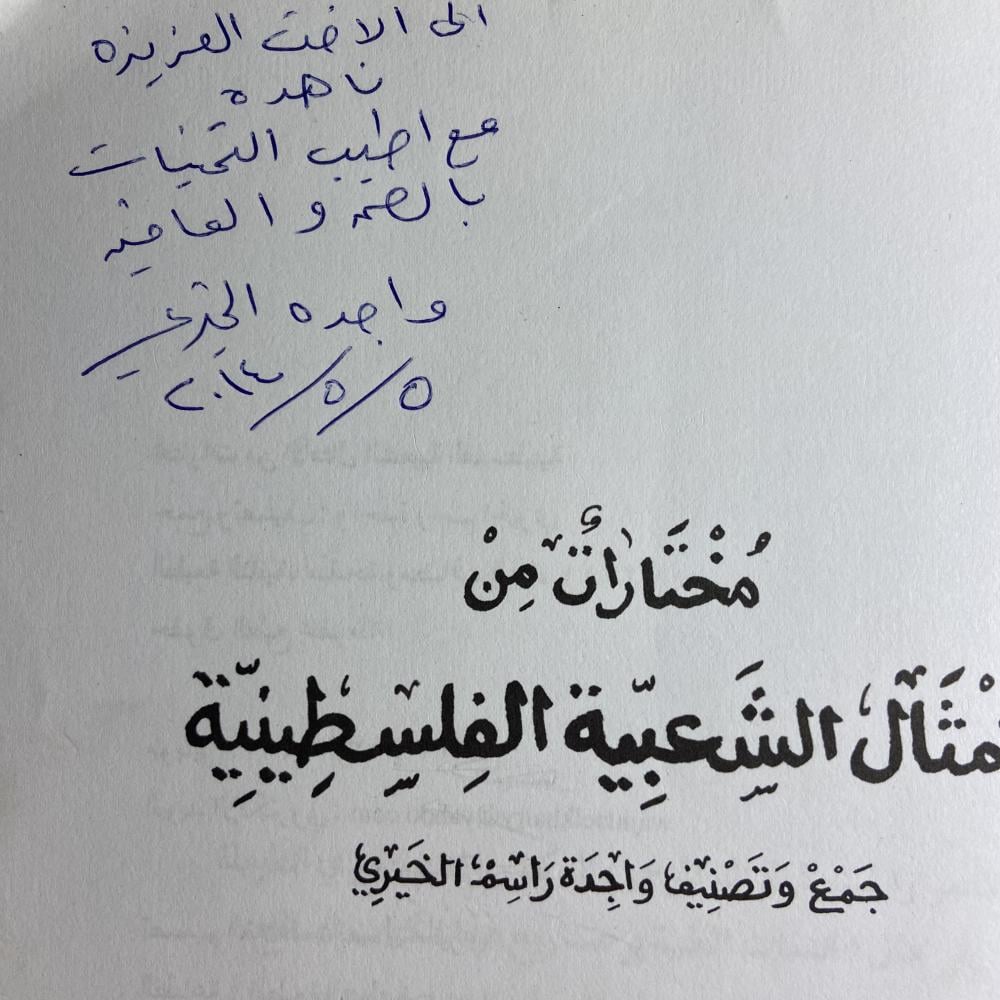 الى الاخت العزيزه
ناهده
مع اطيب التحيات
بالصحه و العافيه
واجده الخيري
٥/٥/٢٠١٤
مُخْتَارَاتٌ مِنْ
مْثَال الشَّعبِيَّة الفِلِسطِينِيَّة
جَمْعْ وَتَصْنِيف وَاجِدَة رَاسِم الخَيرِي